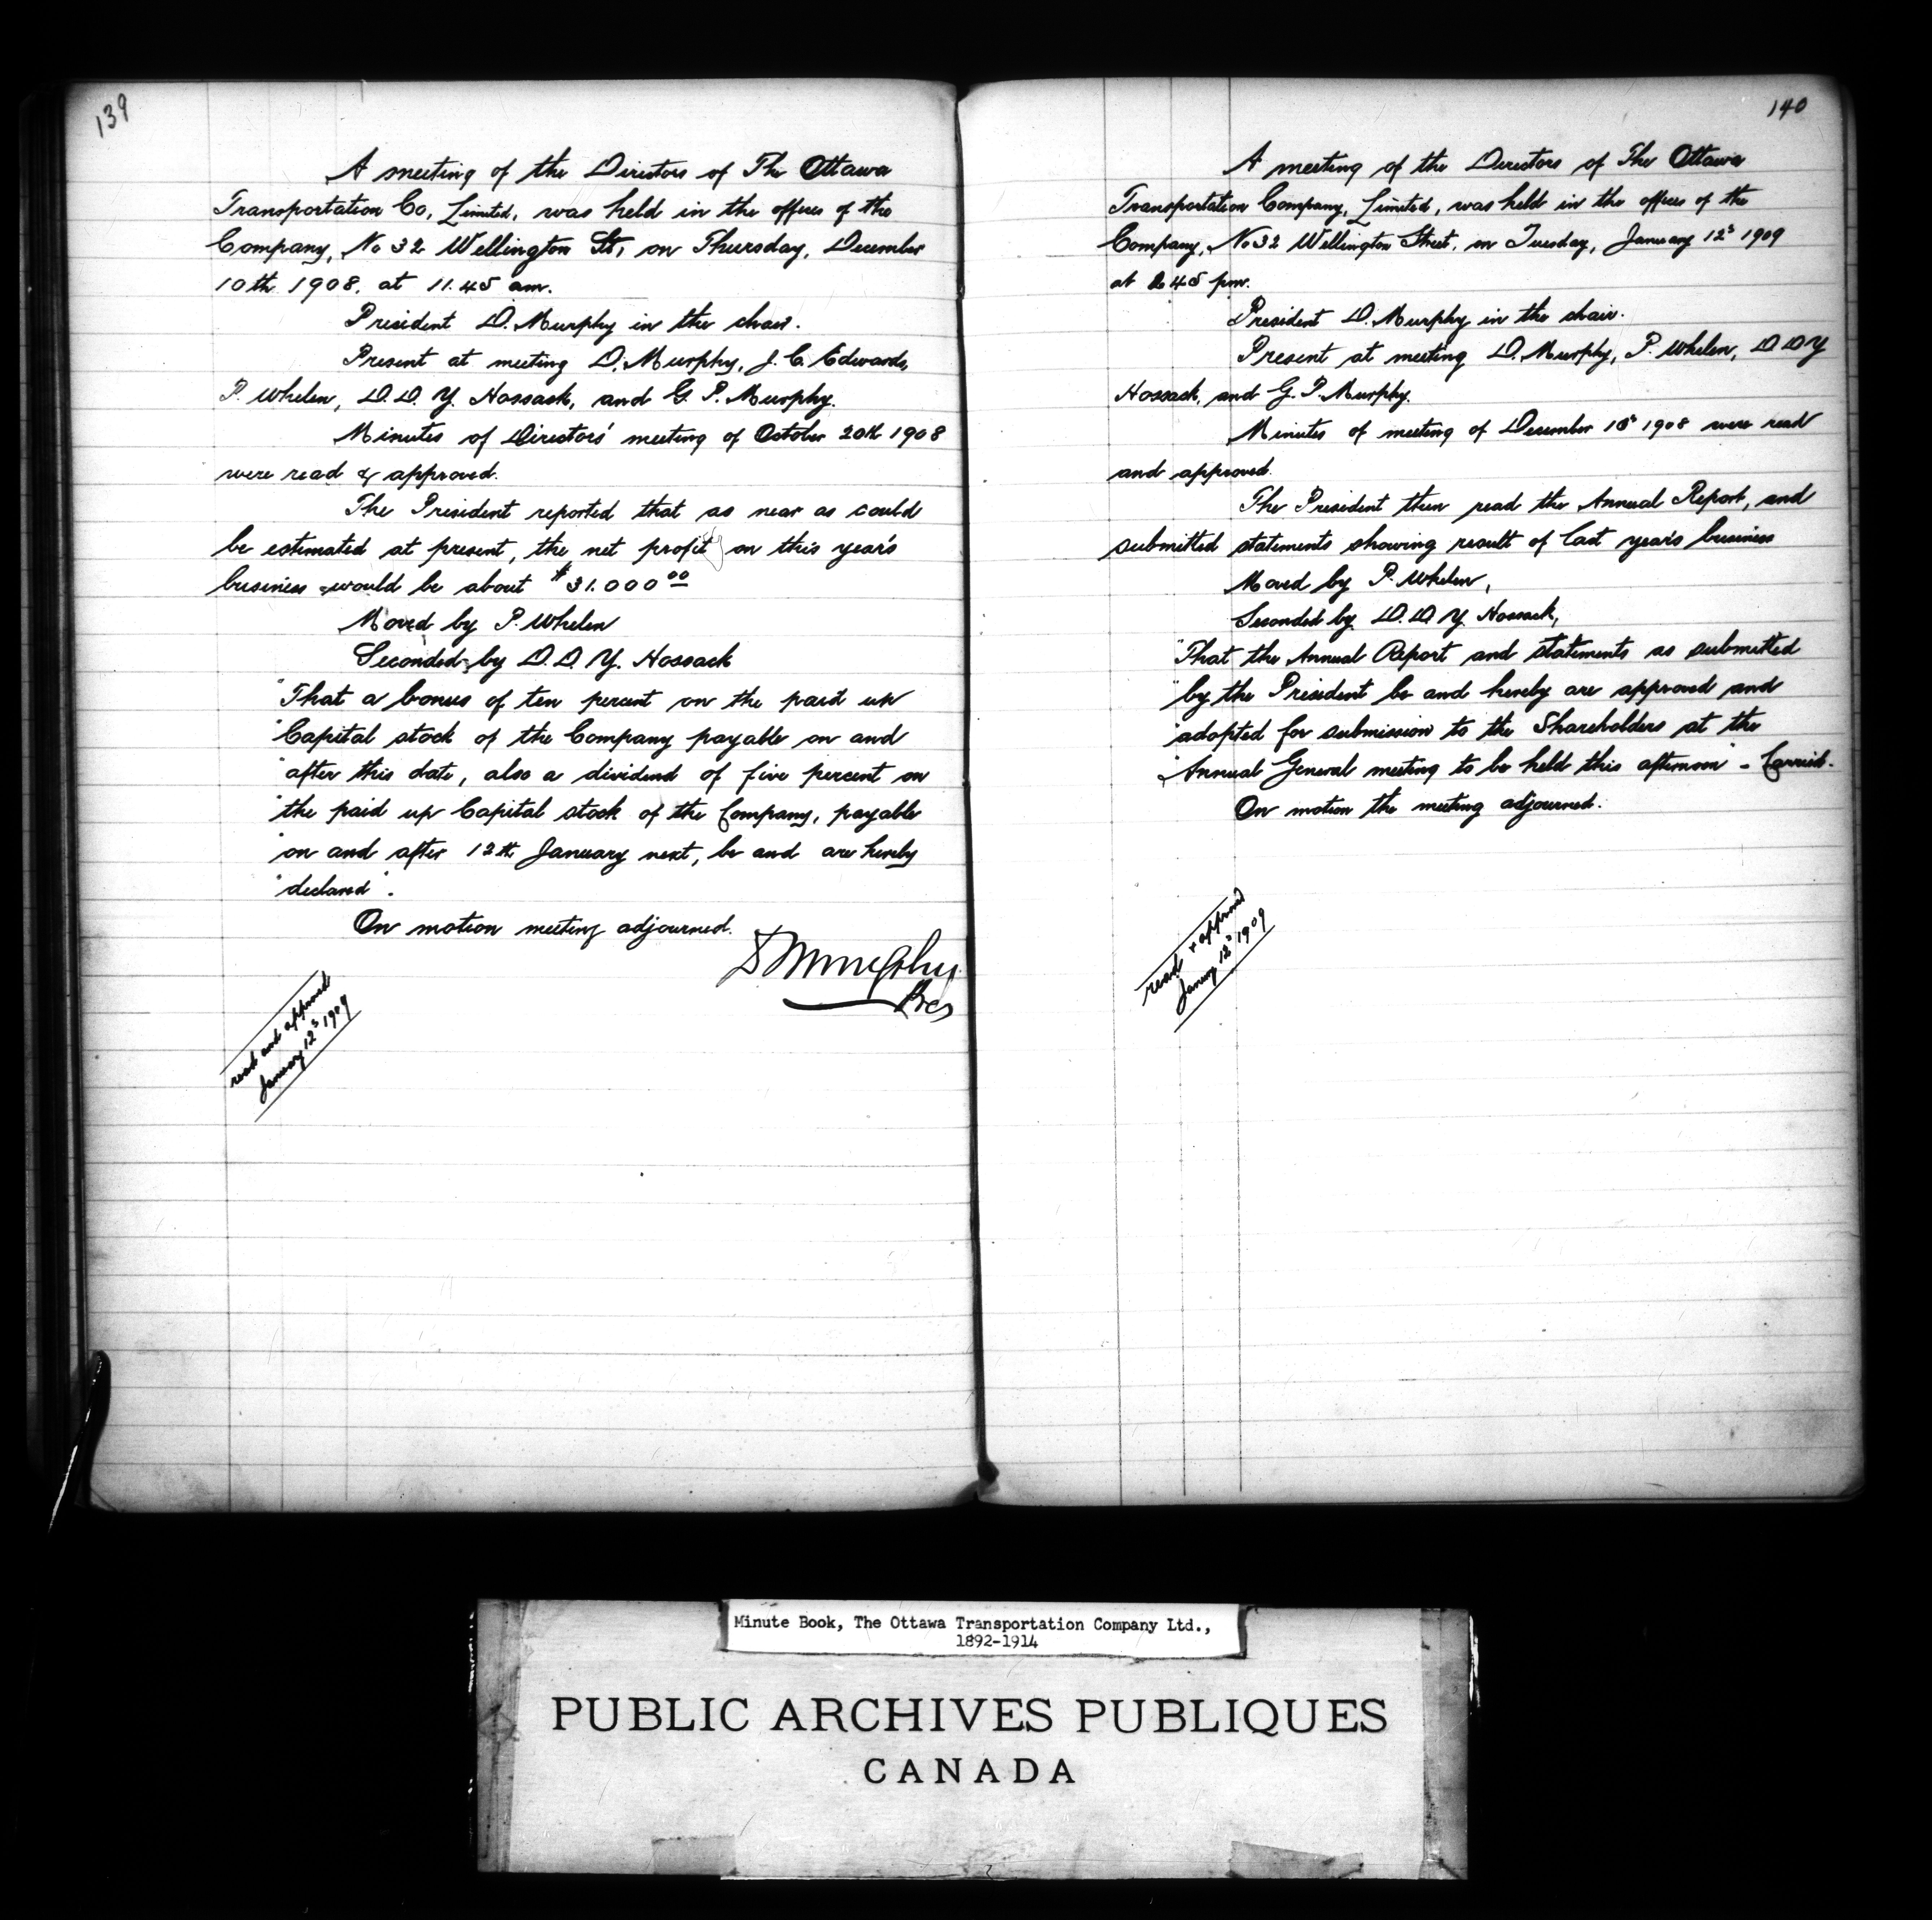 139
A meeting of the Directors of The Ottawa
Transportation Co, Limited, was held in the offices of the
Company, No 32 Wellington St, on Thursday, December
10th 1908, at 11.45 am.
President D. Murphy in the chair.
Present at meeting D. Murphy, J. C. Edwards,
P. Whelen, D. D. Y. Hossack, and G. P. Murphy.
Minutes of Directors' meeting of October 20th 1908
were read & approved.
The President reported that as near as could
be estimated at present, the net profit on this year's
business would be about $31.000 00
Moved by P. Whelen
Seconded by D. D. Y. Hossack
"That a bonus of ten percent on the paid up
"Capital stock of the Company payable on and
"after this date, also a dividend of five percent on
"the paid up Capital stock of the Company, payable
"on and after 12th January next, be and are hereby
"declared".
On motion meeting adjourned.
D Murphy
Pres
read and approved
January 12th 1909
140
A meeting of the Directors of The Ottawa
Transportation Company, Limited, was held in the offices of the
Company, No 32 Wellington Street, on Tuesday, January 12th 1909
at 45 pm.
President D. Murphy in the chair.
Present at meeting D. Murphy, P. Whelen, D D Y
Hossack, and G. P. Murphy.
Minutes of meeting of December 10th 1908 were read
and approved.
The President then read the Annual Report, and
submitted statements showing result of last year's business
Moved by P. Whelen,
Seconded by D. D Y. Hossack,
"That the Annual Report and statements as submitted
"by the President be and hereby are approved and
"adopted for submission to the Shareholders at the
"Annual General meeting to be held this afternoon" - Carried.
On motion the meeting adjourned.
read & approved
January 12th 1909
Minute Book, The Ottawa Transportation Company Ltd.,
1892-1914
PUBLIC ARCHIVES PUBLIQUES
CANADA